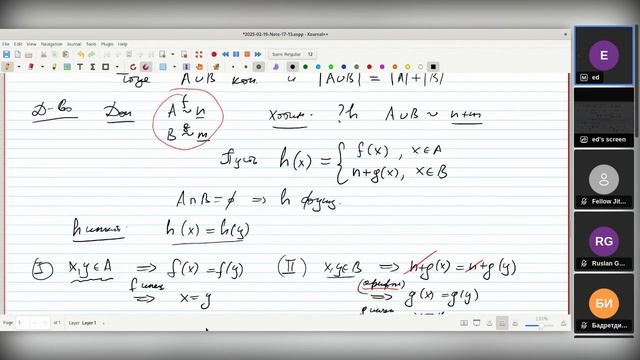 *2025-02-19-Note-17-13.xopp - Xournal++
File Edit View Navigation Journal Tools Plugin Help
Sans Regular 12
Тогда A∪B кон. и |A∪B| = |A|+|B|
Д-во Дан A ~ n Хотим. ?h A∪B ~ n+m
f
B ~ m
g
Пусть h(x) = { f(x), x∈A
n+g(x), x∈B
A∩B=∅ ⇒ h функ.
h инъект. h(x) = h(y)
I x,y∈A ⇒ f(x)=f(y) II x,y∈B ⇒ n+g(x) = n+g(y)
f инъек
⇒ x=y ⇒ g(x)=g(y)
Page 1 of 1 Layer Layer 1 133%
E
ed
ed's screen
Fellow Jit...
RG
Ruslan G...
БИ
Бадретди...